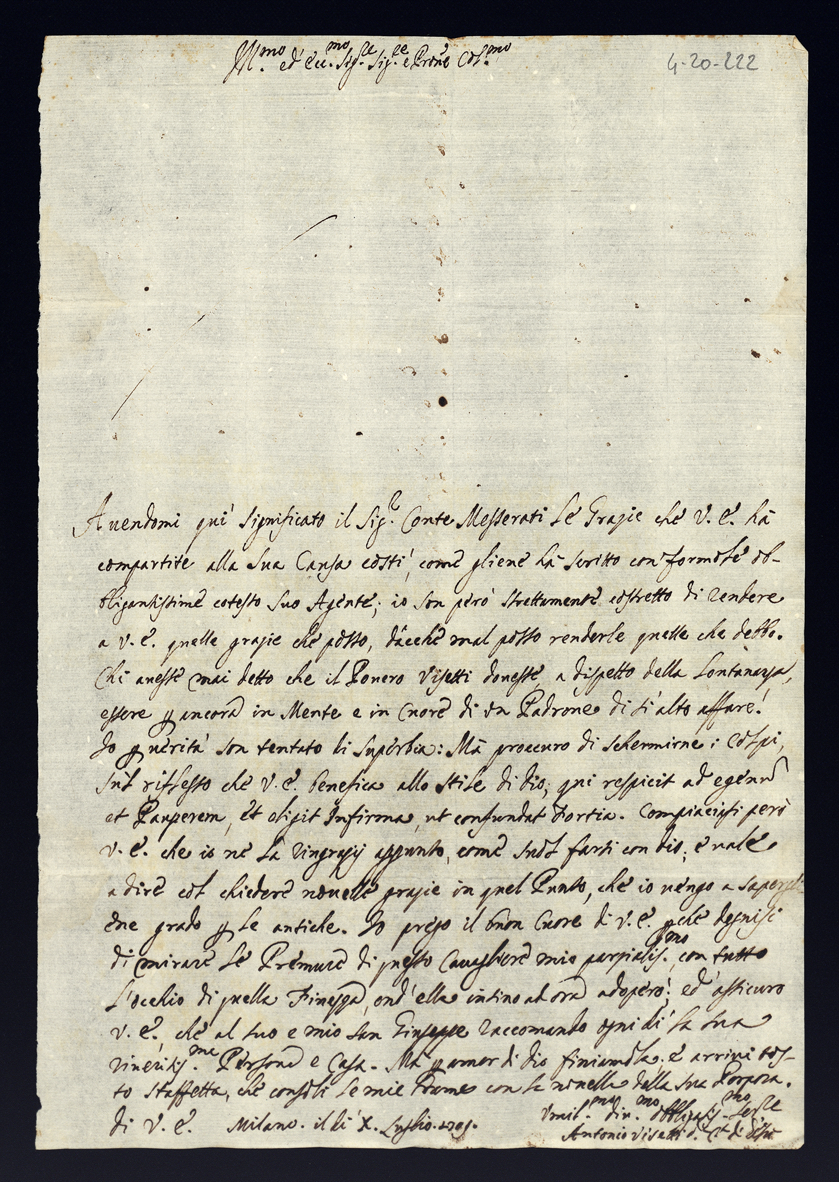 Ill.mo ed Ecc.mo Sig.re Sig.re e Prône Col.mo
4-20-222
Avendomi quì significato il Sig.r Conte Messerati le Grazie che V. E. hà
compartite alla sua Causa costì, come gliene hà scritto con formole ob-
bligantissime cotesto suo Agente; io son però strettamente costretto di rendere
a V. E. quelle grazie che posso, dacchè mal posso renderle quelle che debbo.
Chi avesse mai detto che il Povero Visetti dovesse, a dispetto della Lontananza,
essere ancora in Mente e in Cuore di un Padrone di sì alto affare!
Io verità son tentato di superbia: Mà proccuro di schermirne i Colpi,
sul riflesso che V. E. benefica allo stile di Dio, qui respicit ad egenum
et Pauperem, et eligit Infirma, ut confundat Fortia. Compiacciasi però
V. E. che io ne la ringrazij appunto, come suol farsi con Dio; è vale
a dire col chiedere novelle grazie in quel Punto, che io vengo a
grado le antiche. Io prego il buon Cuore di V. E. che degnisi
di mirare le Premure di questo Cavagliere mio parzialis.mo, con tutto
l'occhio di quella Finezza, ond'ella insino ad ora adoperò; ed assicuro
V. E., che al suo e mio San Giuseppe raccomando ogni dì la sua
riveritis.ma Persona e Casa. Mà amor di Dio finiamola. è arrivi tos-
to Staffetta, che consoli le mie Brame con la novella della sua Porpora.
Di V. E. Milano. il dì X. Luglio.
Umil.mo div.mo obbligatis.mo
Antonio Visetti d. C.a di Giesù